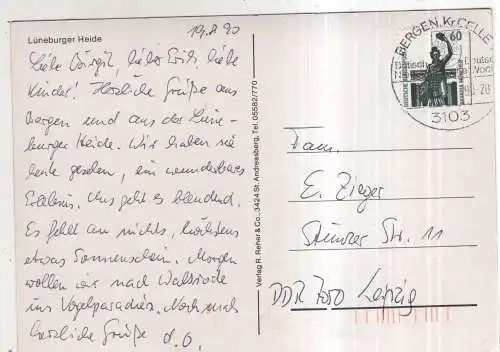 19.8.90
Lüneburger Heide
Liebe Birgit, lieber Erich, liebe
Kinder! Herzliche Grüße aus
Bergen und aus der Lüne-
burger Heide. Wir haben sie
heute gesehen, ein wunderbares
Erlebnis. Uns geht es blendend.
Es fehlt an nichts, höchstens
etwas Sonnenschein. Morgen
wollen wir nach Walsrode
ins Vogelparadies. Noch mal
herzliche Grüße d. O.
Verlag R. Reher & Co., 3424 St. Andreasberg, Tel. 05582/770
BERGEN, Kr CELLE
60
3103
Fam.
E. Zieger
Stünzer Str. 11
DDR 7050 Leipzig